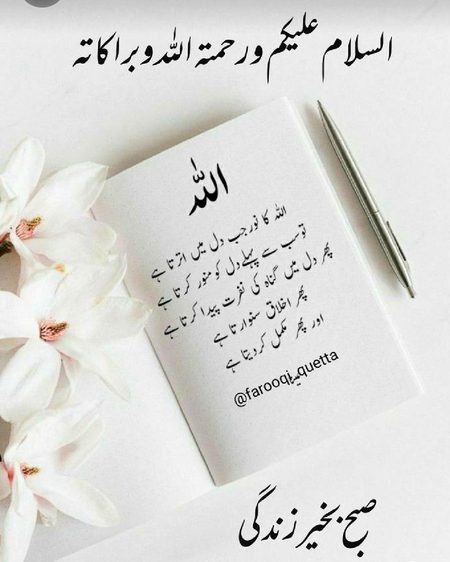 السلام علیکم ورحمتہ اللہ وبراکاتہ
اللہ
اللہ کا نور جب دل میں اترتا ہے
تو سب سے پہلے دل کو منور کرتا ہے
پھر دل میں گناہ کی نفرت پیدا کرتا ہے
پھر اخلاق سنوارتا ہے
اور پھر مکمل کر دیتا ہے
@farooqi_quetta
صبح بخیر زندگی